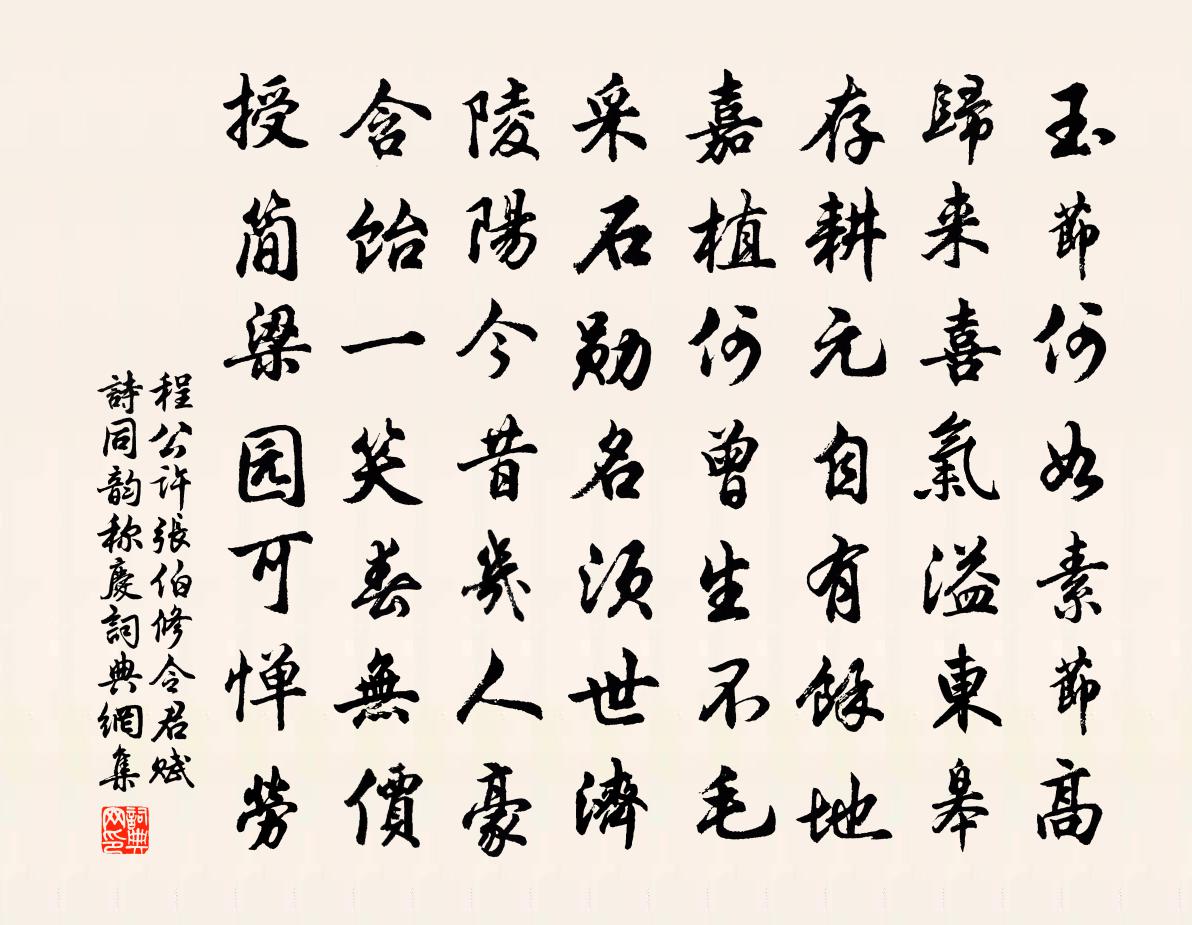 玉節何如素節高
歸来喜氣溢東皋
存耕元自有餘地
嘉植何曾生不毛
采石勋名須世濟
陵陽今昔幾人豪
含飴一笑春無價
授简梁园可惮勞
程公许張伯修令君赋
詩同韵称慶詞典網集
詞典网印